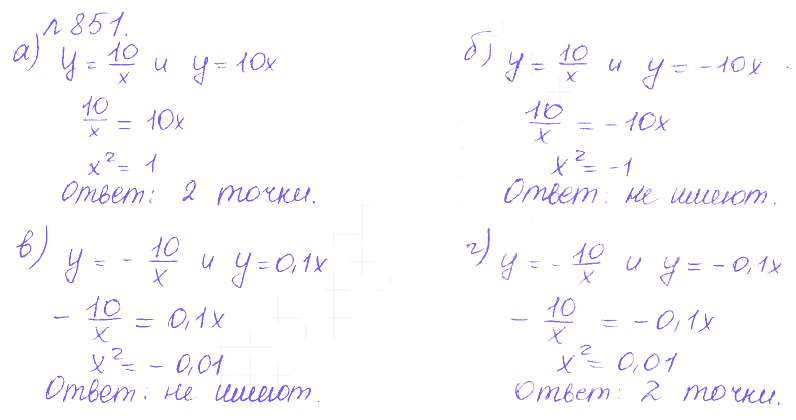 № 851.
а) y = 10/x и y = 10x
10/x = 10x
x² = 1
Ответ: 2 точки.
б) y = 10/x и y = -10x
10/x = -10x
x² = -1
Ответ: не имеют.
в) y = - 10/x и y = 0,1x
- 10/x = 0,1x
x² = - 0,01
Ответ: не имеют.
г) y = - 10/x и y = -0,1x
- 10/x = -0,1x
x² = 0,01
Ответ: 2 точки.